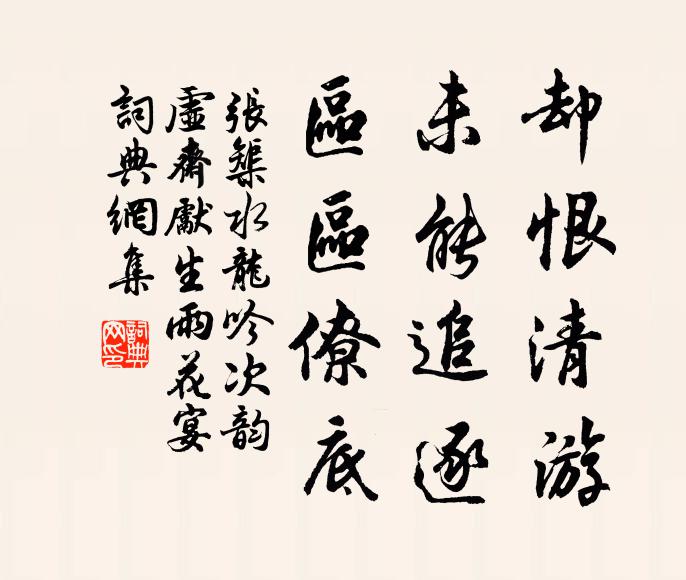 却恨清游
未能追逐
區區僚底
張榘水龍吟次韵
虛齋獻生雨花宴
詞典網集
詞典网印